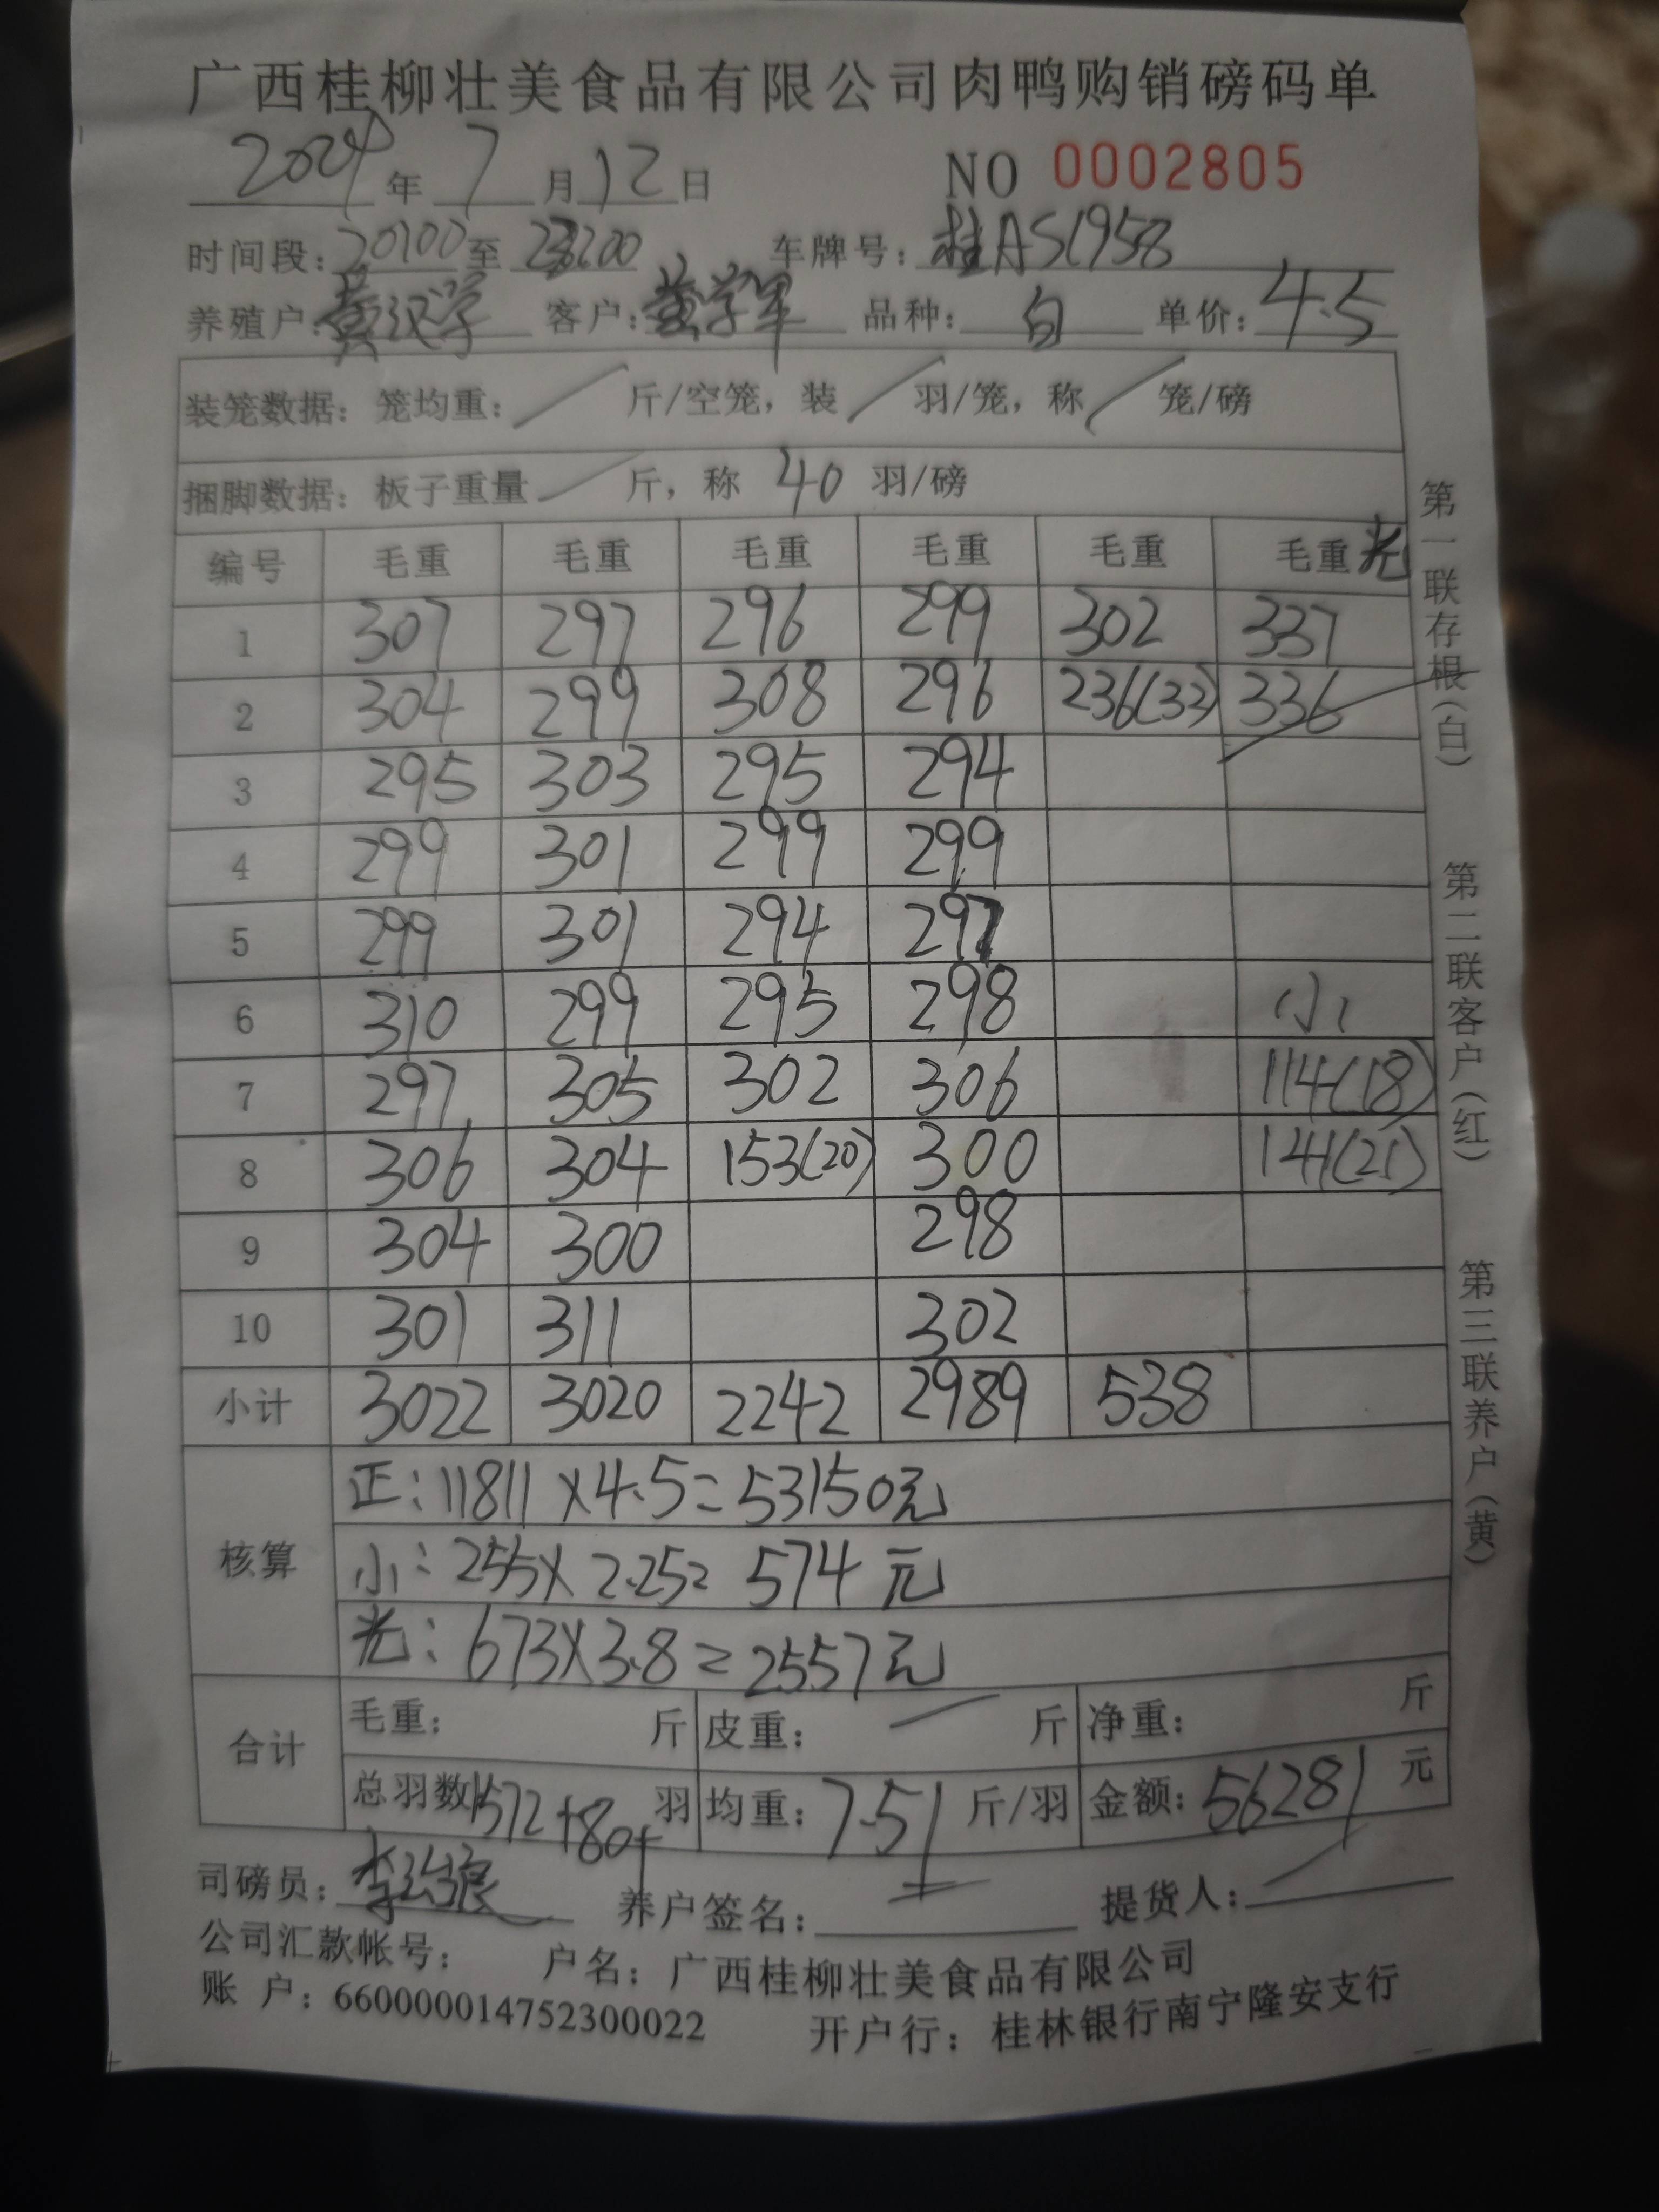 广西桂柳壮美食品有限公司肉鸭购销磅码单
2024年7月12日 NO 0002805
时间段：20:00至23:00 车牌号：桂AS1958
养殖户：黄汉学 客户：黄学军 品种：白 单价：4.5
装笼数据：笼均重：/斤/空笼，装/羽/笼，称/笼/磅
捆脚数据：板子重量/斤，称 40 羽/磅
编号 毛重 毛重 毛重 毛重 毛重 毛重光
1 307 297 296 299 302 337
2 304 299 308 296 236(32) 336
3 295 303 295 294
4 299 301 299 299
5 299 301 294 297
6 310 299 295 298 小
7 297 305 302 306 114(18)
8 306 304 153(20) 300 141(21)
9 304 300 298
10 301 311 302
小计 3022 3020 2242 2989 538
核算
正：11811×4.5=53150元
小：255×2.25=574元
光：673×3.8=2557元
合计
毛重： 斤 皮重：/斤 净重： 斤
总羽数1572+80+羽 均重：7.51斤/羽 金额：56281元
司磅员： 养户签名： 提货人：
公司汇款帐号： 户名：广西桂柳壮美食品有限公司
账 户：660000014752300022 开户行：桂林银行南宁隆安支行
第一联存根(白) 第二联客户(红) 第三联养户(黄)